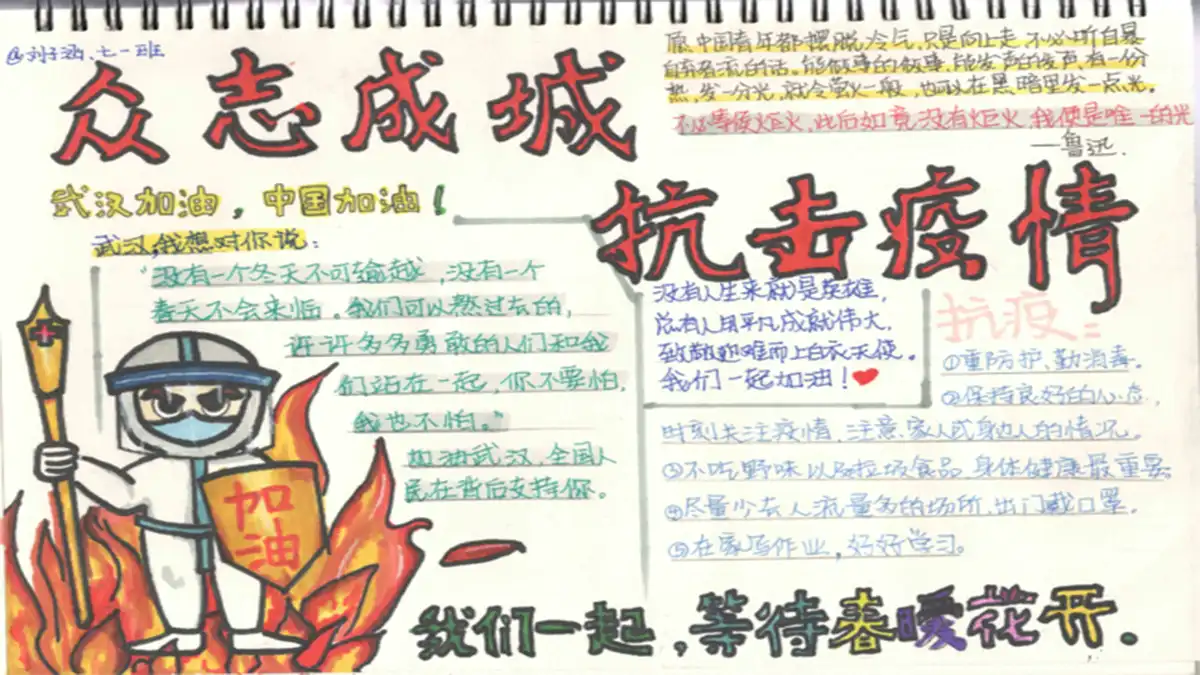 @刘子涵.七一班
众志成城
愿中国青年都摆脱冷气,只是向上走,不必听自暴
自弃者流的话。能做事的做事,能发声的发声。有一份
热,发一分光,就令萤火一般,也可以在黑暗里发一点光。
不必等候炬火,此后如竟没有炬火,我便是唯一的光
——鲁迅.
抗击疫情
武汉加油,中国加油!
武汉,我想对你说:
“没有一个冬天不可逾越,没有一个
春天不会来临。我们可以熬过去的,
许许多多勇敢的人们和我
们站在一起,你不要怕,
我也不怕。”
加油武汉,全国人
民在背后支持你。
没有人生来就是英雄,
总有人用平凡成就伟大,
致敬迎难而上白衣天使。
我们一起加油!
抗疫:
①重防护、勤消毒。
②保持良好的心态,
时刻关注疫情,注意家人或身边人的情况。
③不吃野味以及垃圾食品,身体健康最重要
④尽量少去人流量多的场所,出门戴口罩。
⑤在家写作业,好好学习。
加油
我们一起,等待春暖花开.